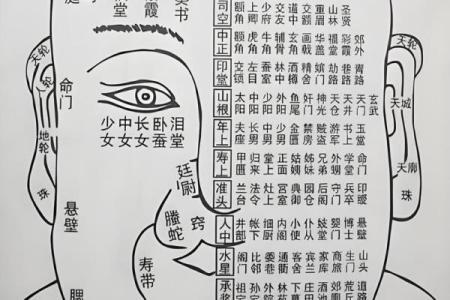 庭
霞堂
美书
司空 额角 上卿 少府 交友 道中 交额 重眉 山林 圣贤
中正 额角 虎角 牛角 辅骨 玄角 斧戟 华盖 福堂 彩霞 郊外
印堂 交锁 左目 蚕室 林中 酒樽 精舍 嫔门 劫路 巷路 青路
山根 太阳 中阳 少阳 外阳 鱼尾 奸门 神光 天仓 天井 天门 玄武
年上 夫座 长男 中男 少男 金匮 禁房 贼盗 游军 书上 玉堂
寿上 甲匮 归来 堂上 正面 姑姨 姊妹 兄弟 外甥 学堂 命门
准头 兰台 法令 灶上 宫室 典御 园仓 后阁 守门 兵卒 印绶
人中 井部 帐下 细厨 内阁 小使 仆从 妓堂 婴门 博士 悬壁
水星 阁门 比邻 委巷 通衢 客舍 宾兰 家库 商旅 生门 山头
承浆 祖宅 孙宅 外院 林苑 下墓 庄田 酒池 郊廓 荒丘 道路
天轮
人轮
地轮
珠
命门
悬壁
腮
少女 中女 长女 卧蚕 泪堂
廷尉
螣蛇
窍
寿带
天轮
天城
天廓
珠